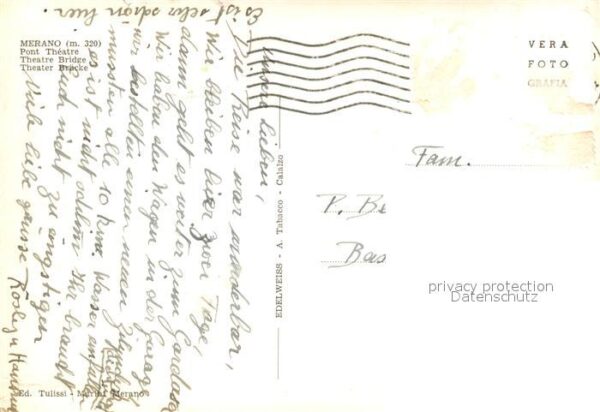 MERANO (m. 320)
Pont Théatre
Theatre Bridge
Theater Brücke
VERA
FOTO
GRAFIA
Es ist sehr schön hier.
Unsere Lieben,
Die Reise war wunderbar,
Wir bleiben hier zwei Tage,
dann geht es weiter zum Gardasee
Wir haben den Wagen in der Garage
wir bestellten einen neuen Zylinder
mussten alle 10 km. Wasser einfüllen
es ist nicht schlimm Ihr braucht
Euch nicht zu ängstigen
Viele liebe Grüsse
Fam.
P. Be
Bas
EDELWEISS - A. Tabacco - Calalzo
privacy protection
Datenschutz
Ed. Tulissi - Merano